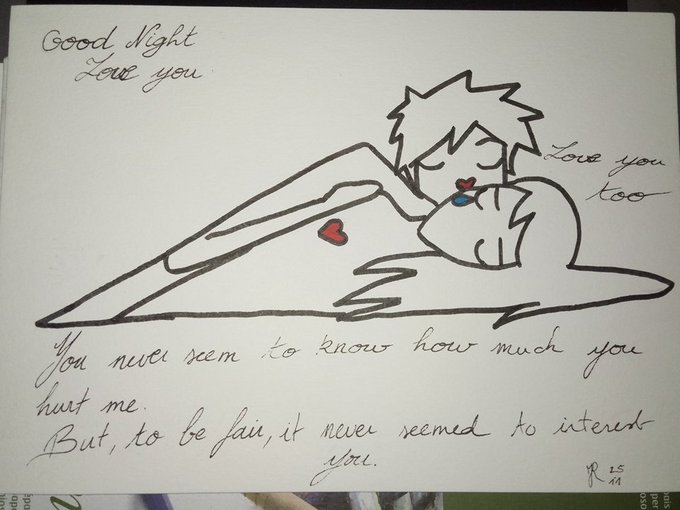 Good Night
Love you
Love you
too
You never seem to know how much you
hurt me.
But, to be fair, it never seemed to interest
you.
JR 25
11